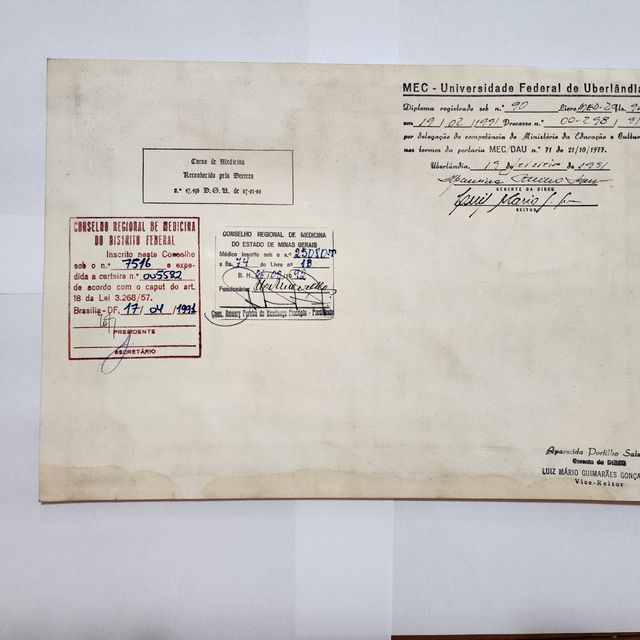 MEC - Universidade Federal de Uberlândia
Diploma registrado sob n.º 90 Livro MED-29 fls. 9
em 19 / 02 / 1991 Processo n.º 00-298 / 91
por delegação de competência do Ministério da Educação e Cultur
nos termos da portaria MEC/DAU n.º 71 de 21/10/1977.
Uberlândia, 19 de fevereiro de 1991
GERENTE DA DIREG
REITOR
Curso de Medicina
Reconhecido pelo Decreto
CONSELHO REGIONAL DE MEDICINA
DO DISTRITO FEDERAL
Inscrito neste Conselho
sob o n.º 7516 e expe-
dida a carteira n.º 005582
de acordo com o caput do art.
18 da Lei 3.268/57.
Brasília-DF, 17 / 04 / 1991
PRESIDENTE
SECRETÁRIO
CONSELHO REGIONAL DE MEDICINA
DO ESTADO DE MINAS GERAIS
Médico inscrito sob o n.º 25080
a fls. 74 do Livro n.º 18
B. H.
Funcionário:
Aparecida Portilho Sala
Gerente da DIREG
LUIZ MÁRIO GUIMARÃES GONÇA
Vice-Reitor